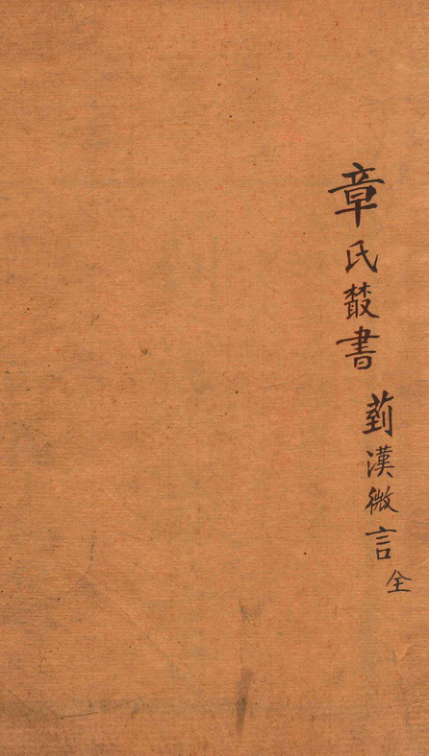 章氏叢書
菿漢微言
全